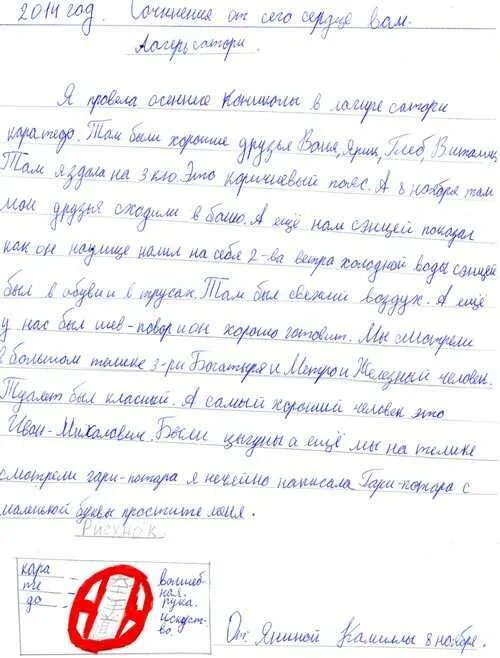 2014 год. Сочинения от сего сердце вам.
Лагерь сатори.
Я провела осенние каниколы в лагере сатори
каратедо. Там были хорошие друзья Ваня, Ярик, Глеб, Виталик,
Там я здала на 3 кю. Это коричневый пояс. А 8 ноября там
мои друзья сходили в баню. А ещё нам сэнцей показал
как он наулице налил на себя 2-ва ветра холодной воды сэнцей
был в обуви и в трусах. Там был свежий воздух. А ещё
у нас был шев-повор и он хорошо готовит. Мы смотрели
в большом телике 3-ри Богатыря и Метро и Железный человек.
Туалет был класный. А самый хороший человек это
Иван-Михалович. Были цыгуны а ещё мы на телике
смотрели гари-потара я нечейно написала Гари-потара с
маленькой буквы простите меня.
Рисунок
кара
те
до
волшеб-
ная.
рука.
искуст-
во.
От: Яниной Камиллы 8 ноября.